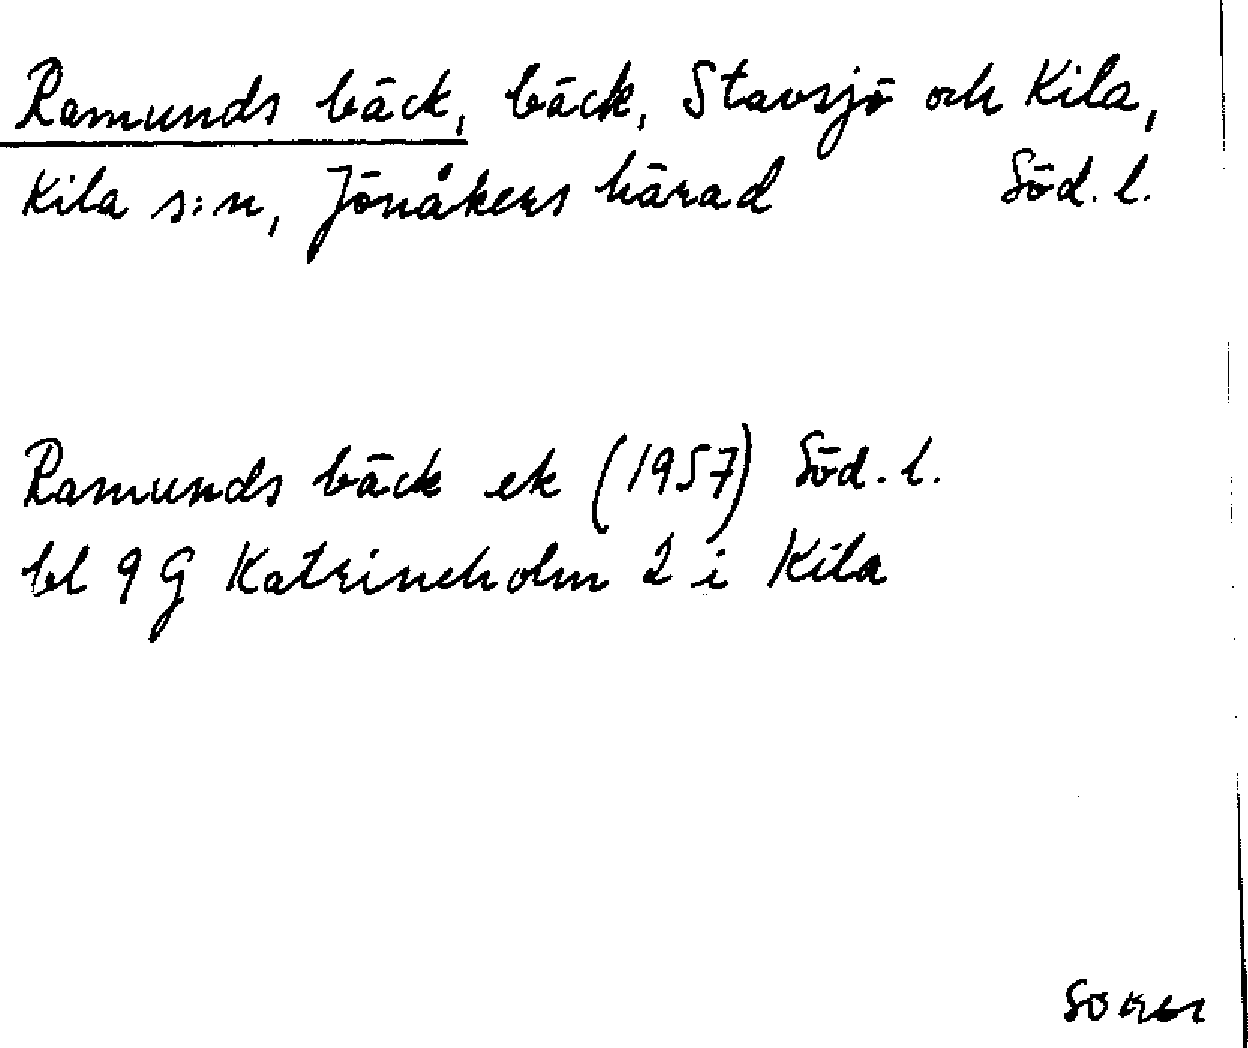 Ramunds bäck, bäck, Stavsjö och Kila,
Kila s:n, Jönåkers härad Söd. l.
Ramunds bäck ek (1957) Söd. l.
bl 9G Katrineholm 2 i Kila